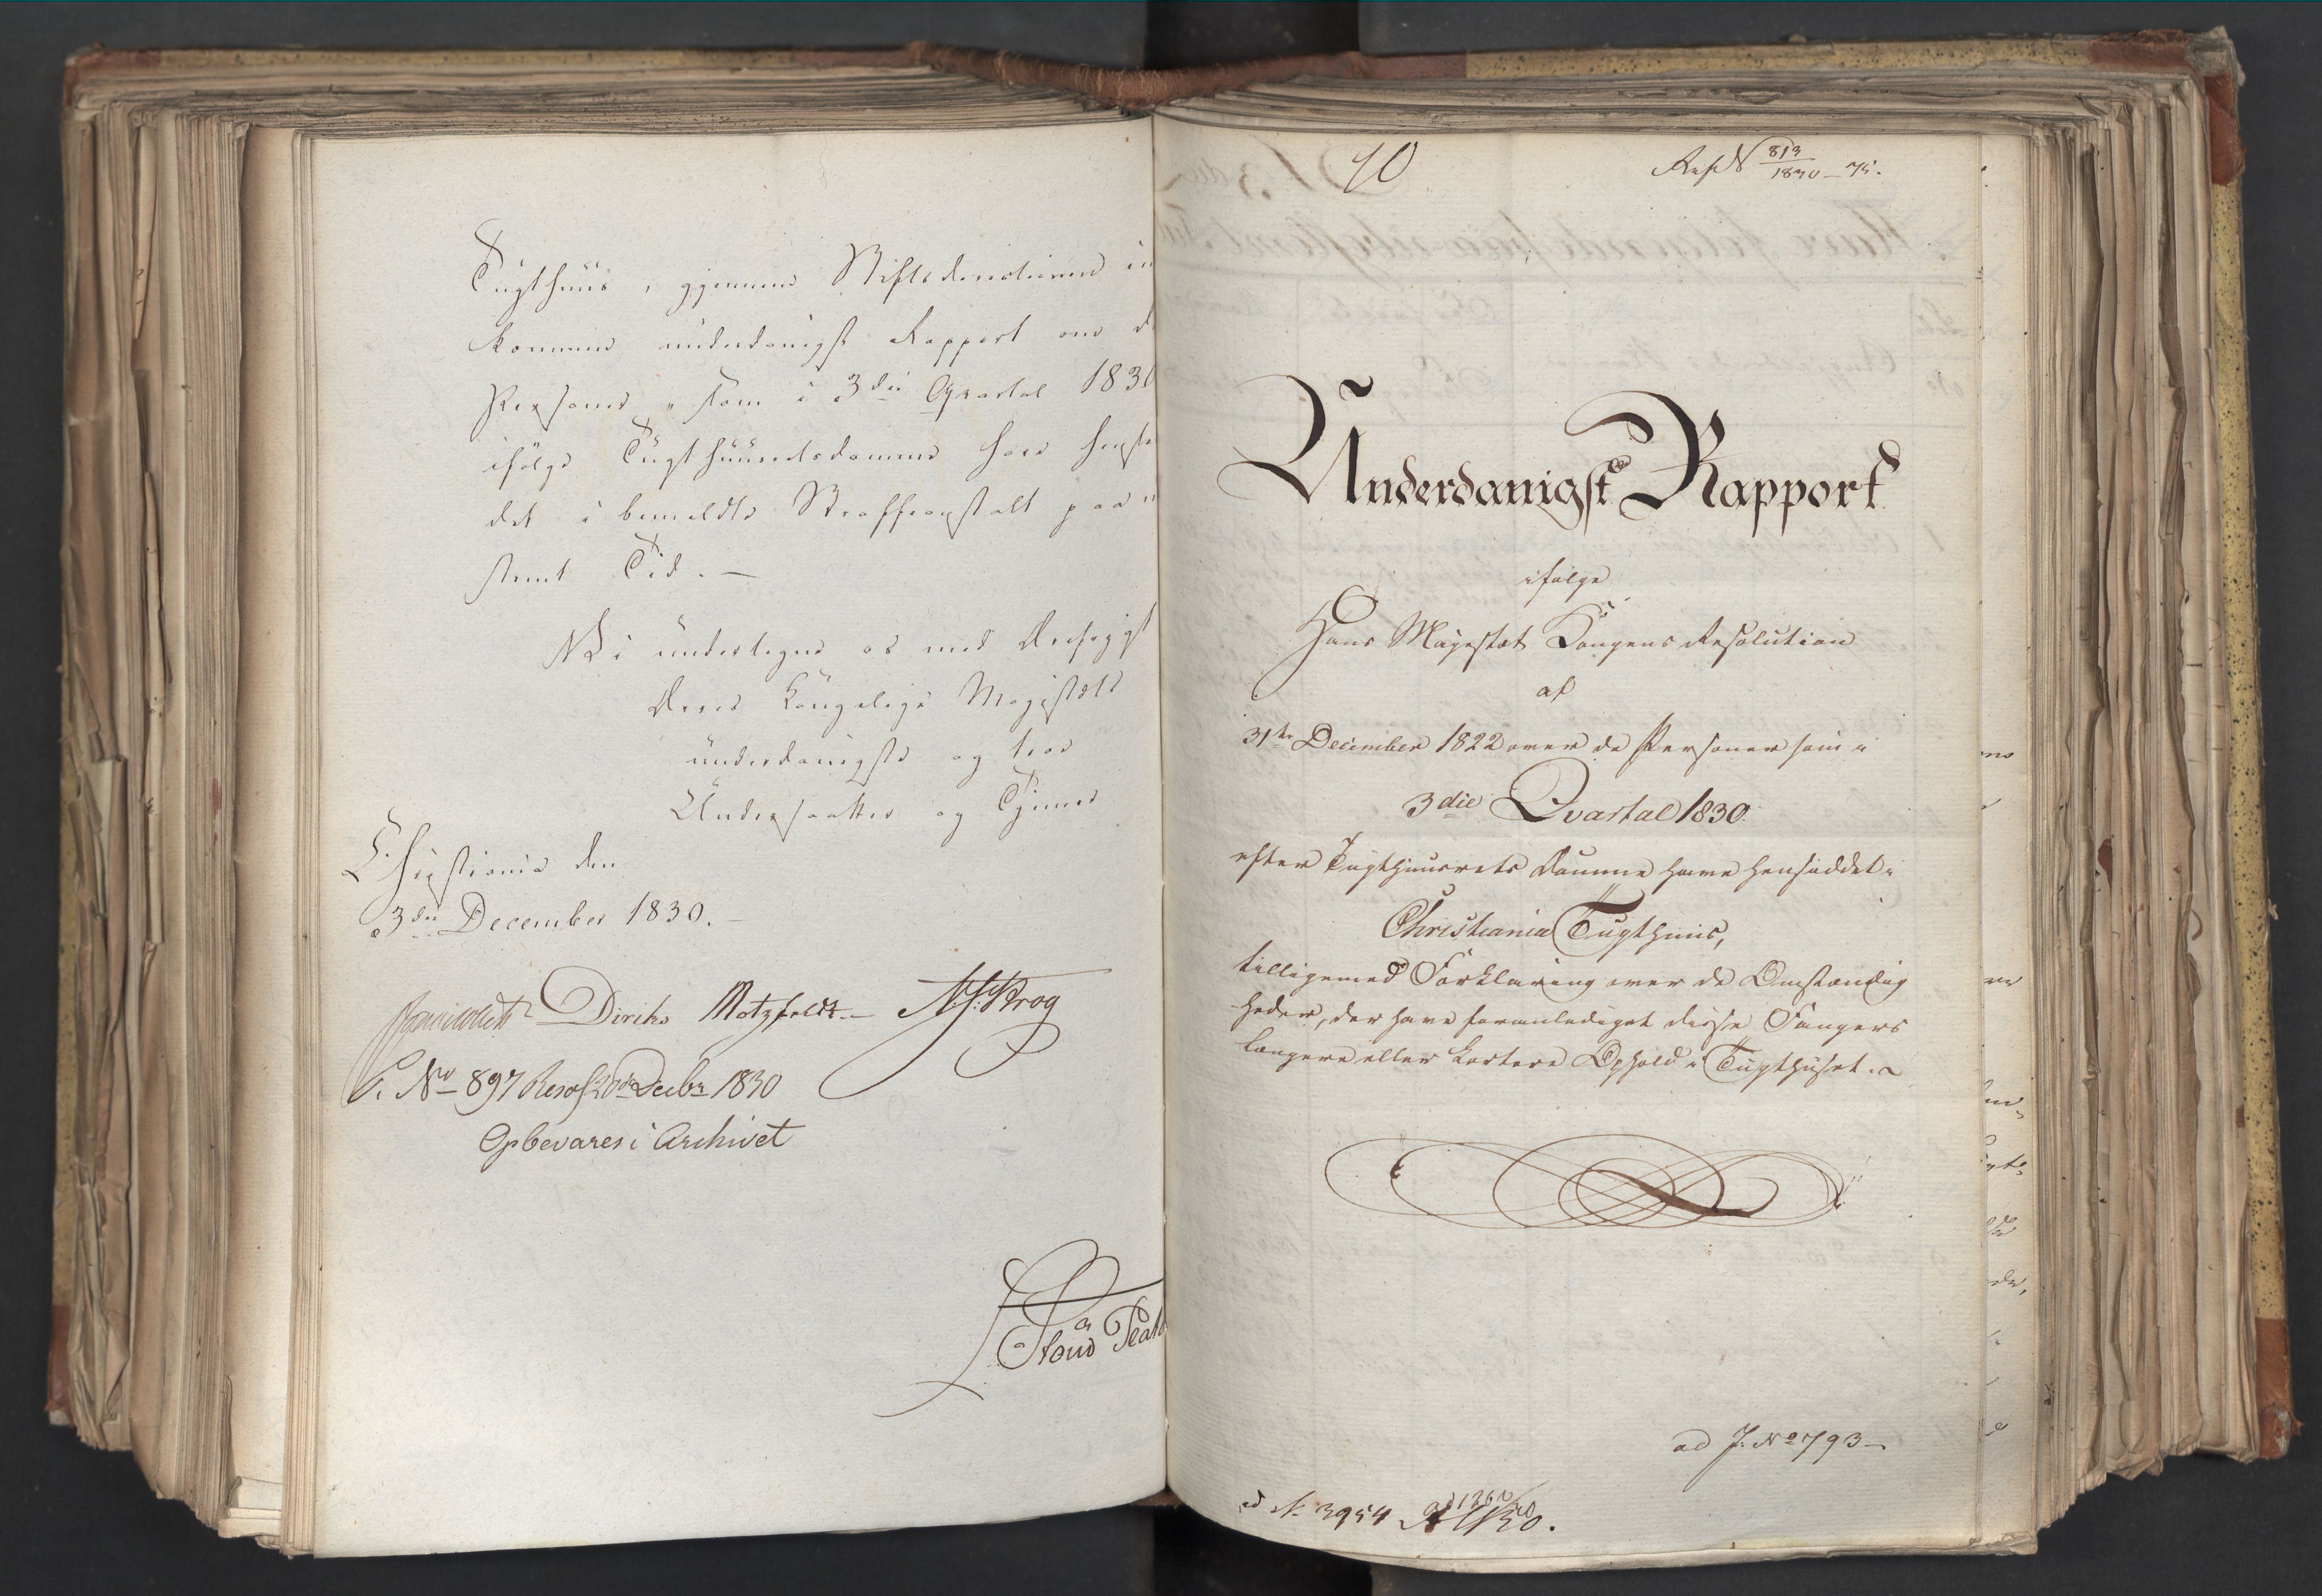 Tugthuus, gjennem Stiftsdirectionen ind
kommen underdanigst Rapport om de
Personer, som i 3die Qvartal 1830
ifølge Tugthuusretsdomme have hensid
det i bemeldte Straffeanstalt paa ube
stemt Tid. —
Vi undertegne os med Ærefrygt
Deres Kongelige Majestæts
underdanigste og troe
Undersaatter og Tjenere
Christiania den
3die December 1830. —
Diriks Motzfeldt. — Krog
P. No 897 Resol. 20de Decbr 1830
Opbevares i Archivet
10
Ref No 813/1830 – 75.
Underdanigst Rapport
ifølge
Hans Majestæt Kongens Resolution
af
31te December 1822 over de Personer som i
3die Qvartal 1830.
efter Tugthuusrets Domme have hensiddet i
Christiania Tugthuus,
tilligemed Forklaring over de Omstændig
heder, der have foranlediget disse Fangers
længere eller kortere Ophold i Tugthuset.
ad J. No 793 –
ad No 3954